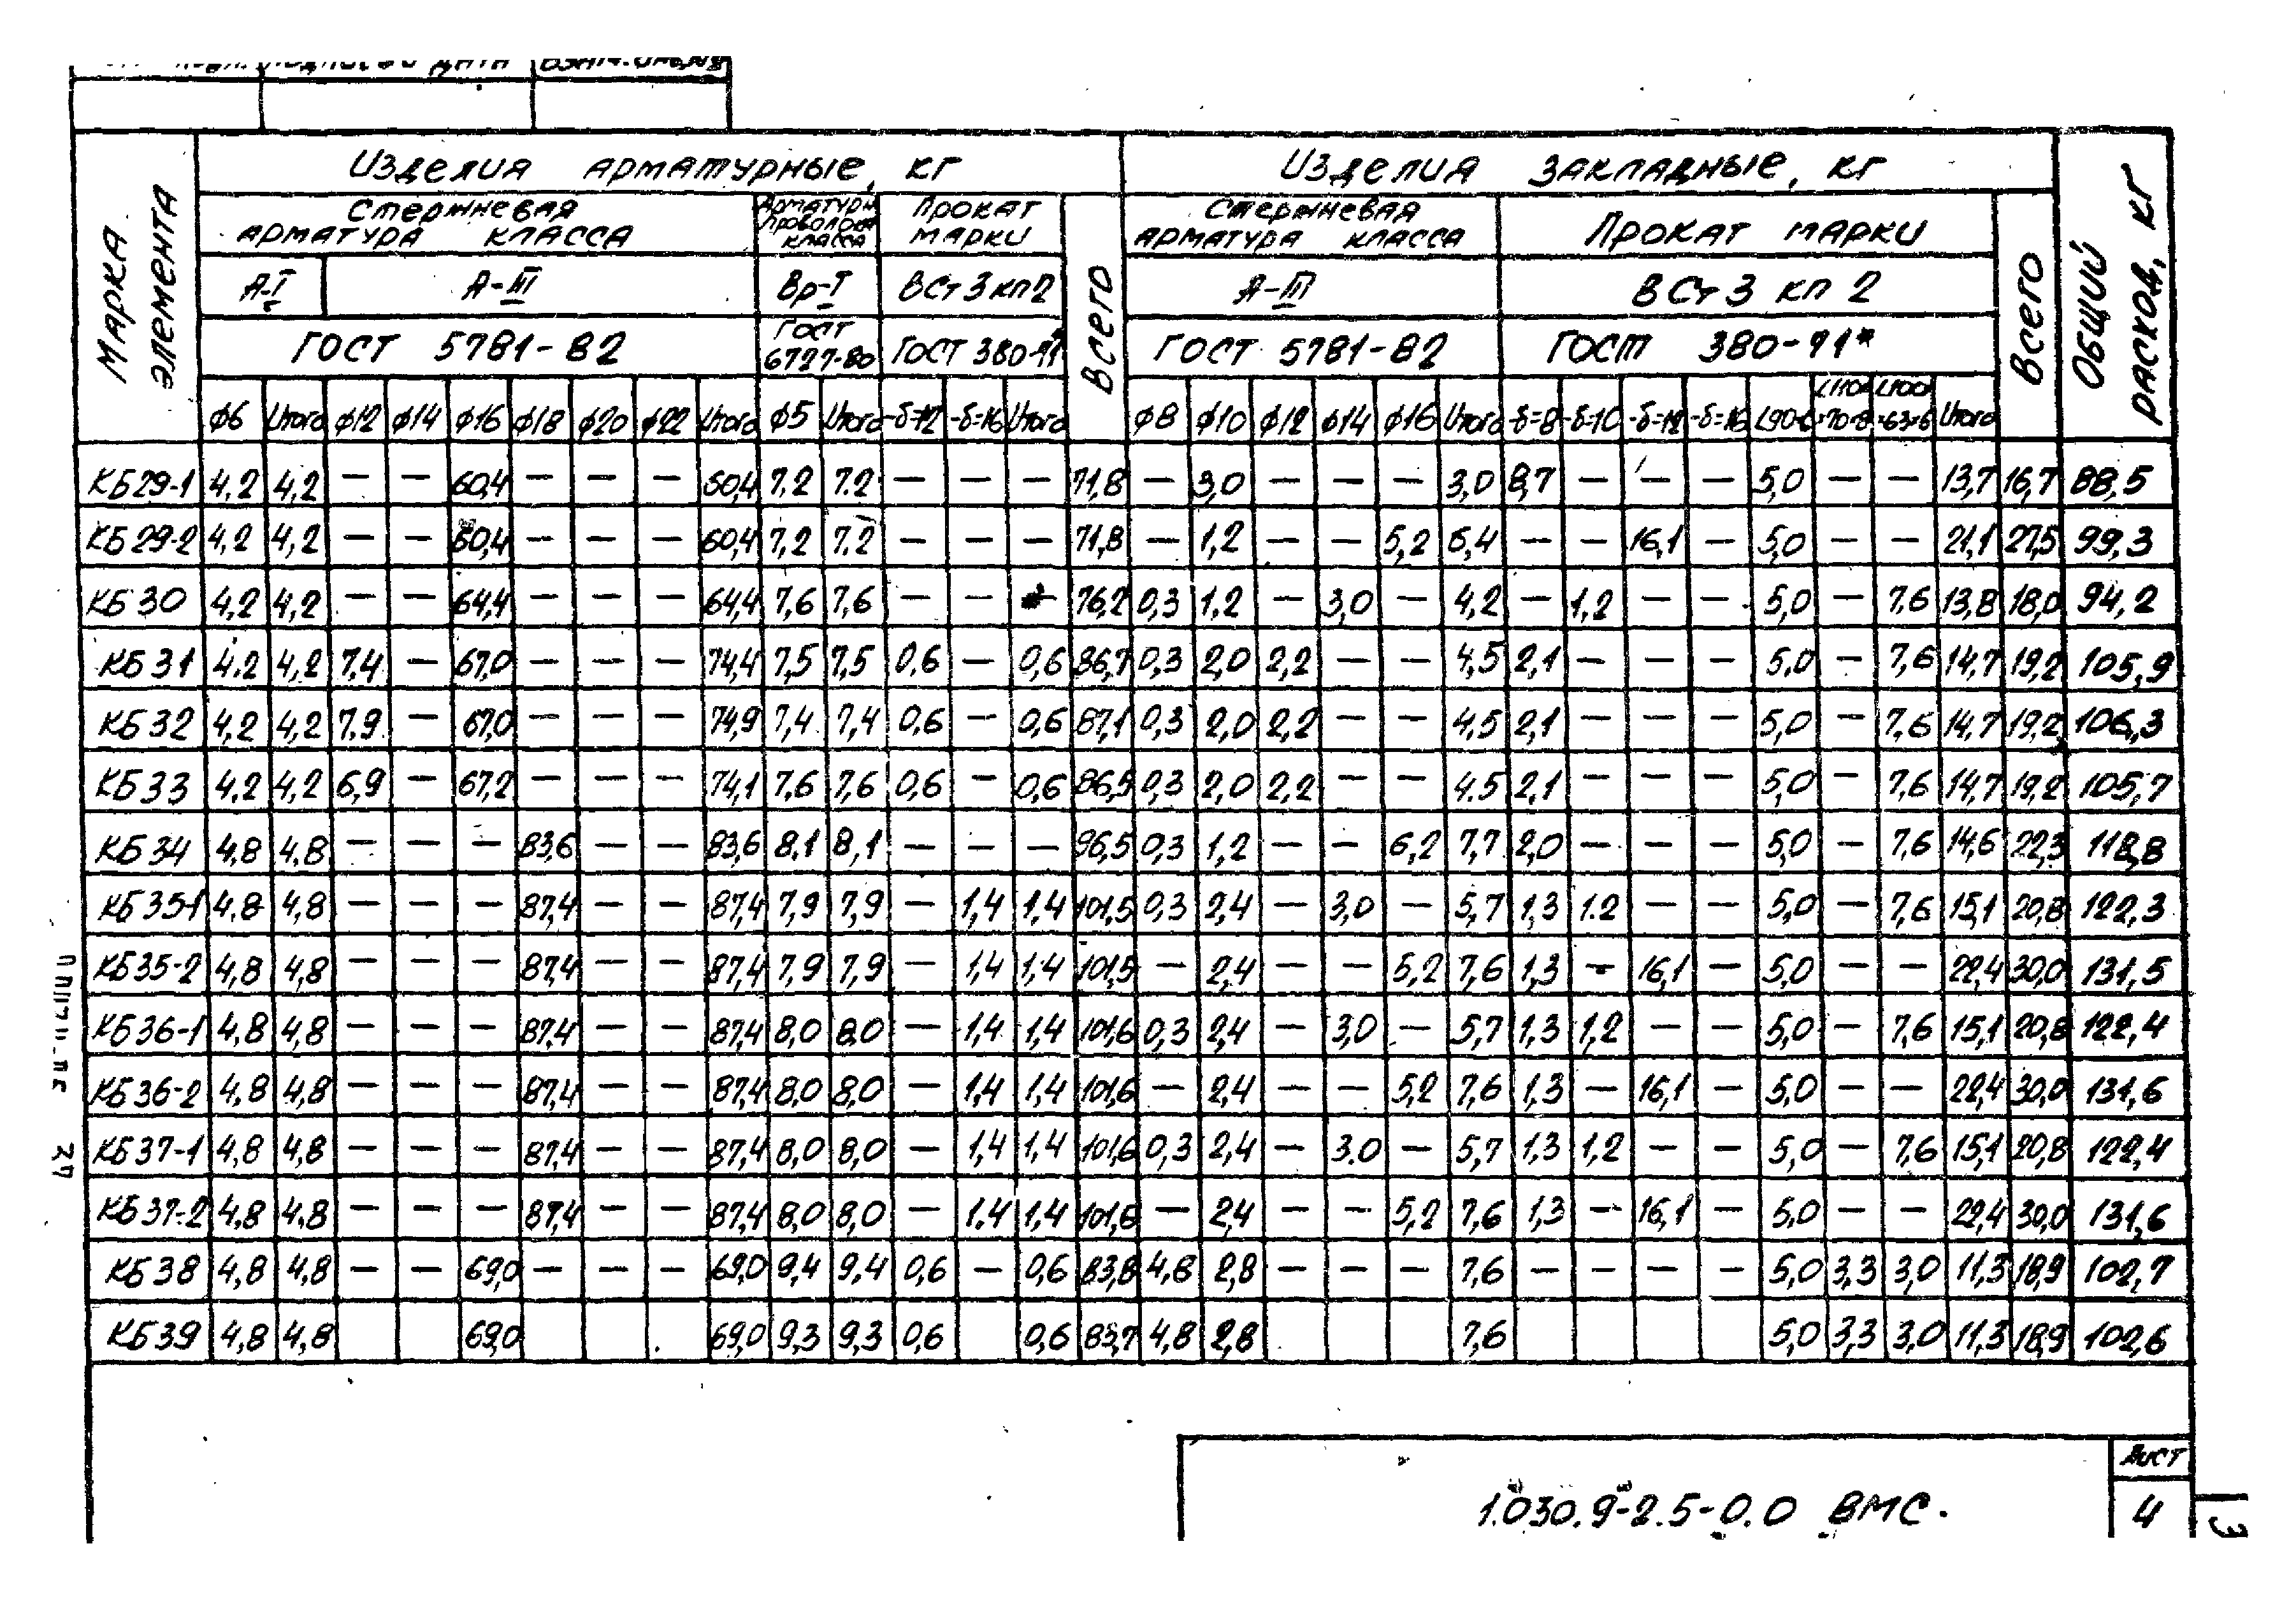 Изделия арматурные, кг Изделия закладные, кг
Марка элемента
Стержневая арматура класса
Арматурн. проволока класса
Прокат марки
Всего
Стержневая арматура класса
Прокат марки
Всего
Общий расход, кг
А-I А-III Вр-I ВСт3кп2 А-III ВСт3 кп 2
ГОСТ 5781-82 ГОСТ 6727-80 ГОСТ 380-71* ГОСТ 5781-82 ГОСТ 380-71*
ф6 Итого ф12 ф14 ф16 ф18 ф20 ф22 Итого ф5 Итого -δ=12 -δ=16 Итого ф8 ф10 ф12 ф14 ф16 Итого -δ=8 -δ=10 -δ=12 -δ=16 L90×6 L110×70×8 L100×63×6 Итого
КБ29-1 4,2 4,2 — — 60,4 — — — 60,4 7,2 7.2 — — — 71,8 — 3,0 — — — 3,0 8,7 — — — 5,0 — — 13,7 16,7 88,5
КБ29-2 4,2 4,2 — — 60,4 — — — 60,4 7,2 7.2 — — — 71,8 — 1,2 — — 5,2 6,4 — — 16,1 — 5,0 — — 21,1 27,5 99,3
КБ30 4,2 4,2 — — 64,4 — — — 64,4 7,6 7,6 — — — 76,2 0,3 1,2 — 3,0 — 4,2 — 1,2 — — 5,0 — 7,6 13,8 18,0 94,2
КБ31 4,2 4,2 7,4 — 67,0 — — — 74,4 7,5 7,5 0,6 — 0,6 86,7 0,3 2,0 2,2 — — 4,5 2,1 — — — 5,0 — 7,6 14,7 19,2 105,9
КБ32 4,2 4,2 7.9 — 67,0 — — — 74,9 7,4 7,4 0,6 — 0,6 87,1 0,3 2,0 2,2 — — 4,5 2,1 — — — 5,0 — 7,6 14,7 19,2 106,3
КБ33 4,2 4,2 6,9 — 67,2 — — — 74,1 7,6 7,6 0,6 — 0,6 86,5 0,3 2,0 2,2 — — 4.5 2,1 — — — 5,0 — 7,6 14,7 19,2 105,7
КБ34 4,8 4,8 — — — 83,6 — — 83,6 8,1 8,1 — — — 96,5 0,3 1,2 — — 6,2 7,7 2,0 — — — 5,0 — 7,6 14,6 22,3 118,8
КБ35-1 4,8 4,8 — — — 87,4 — — 87,4 7,9 7,9 — 1,4 1,4 101,5 0,3 2,4 — 3,0 — 5,7 1,3 1.2 — — 5,0 — 7,6 15,1 20,8 122,3
КБ35-2 4,8 4,8 — — — 87,4 — — 87,4 7,9 7,9 — 1,4 1,4 101,5 — 2,4 — — 5,2 7,6 1,3 — 16,1 — 5,0 — — 22,4 30,0 131,5
КБ36-1 4,8 4,8 — — — 87,4 — — 87,4 8,0 8,0 — 1,4 1,4 101,6 0,3 2,4 — 3,0 — 5,7 1,3 1,2 — — 5,0 — 7,6 15,1 20,8 122,4
КБ36-2 4,8 4,8 — — — 87,4 — — 87,4 8,0 8,0 — 1,4 1,4 101,6 — 2,4 — — 5,2 7,6 1,3 — 16,1 — 5,0 — — 22,4 30,0 131,6
КБ37-1 4,8 4,8 — — — 87,4 — — 87,4 8,0 8,0 — 1,4 1,4 101,6 0,3 2,4 — 3.0 — 5,7 1,3 1,2 — — 5,0 — 7,6 15,1 20,8 122,4
КБ37-2 4,8 4,8 — — — 87,4 — — 87,4 8,0 8,0 — 1.4 1,4 101,6 — 2,4 — — 5,2 7,6 1,3 — 16,1 — 5,0 — — 22,4 30,0 131,6
КБ38 4,8 4,8 — — 69,0 — — — 69,0 9,4 9,4 0,6 — 0,6 83,8 4,8 2,8 — — — 7,6 — — — — 5,0 3,3 3,0 11,3 18,9 102,7
КБ39 4,8 4,8 69,0 69,0 9,3 9,3 0,6 0,6 83,7 4,8 2,8 7,6 5,0 3,3 3,0 11,3 18,9 102,6
Лист
1.030.9-2.5-0.0 ВМС.
4